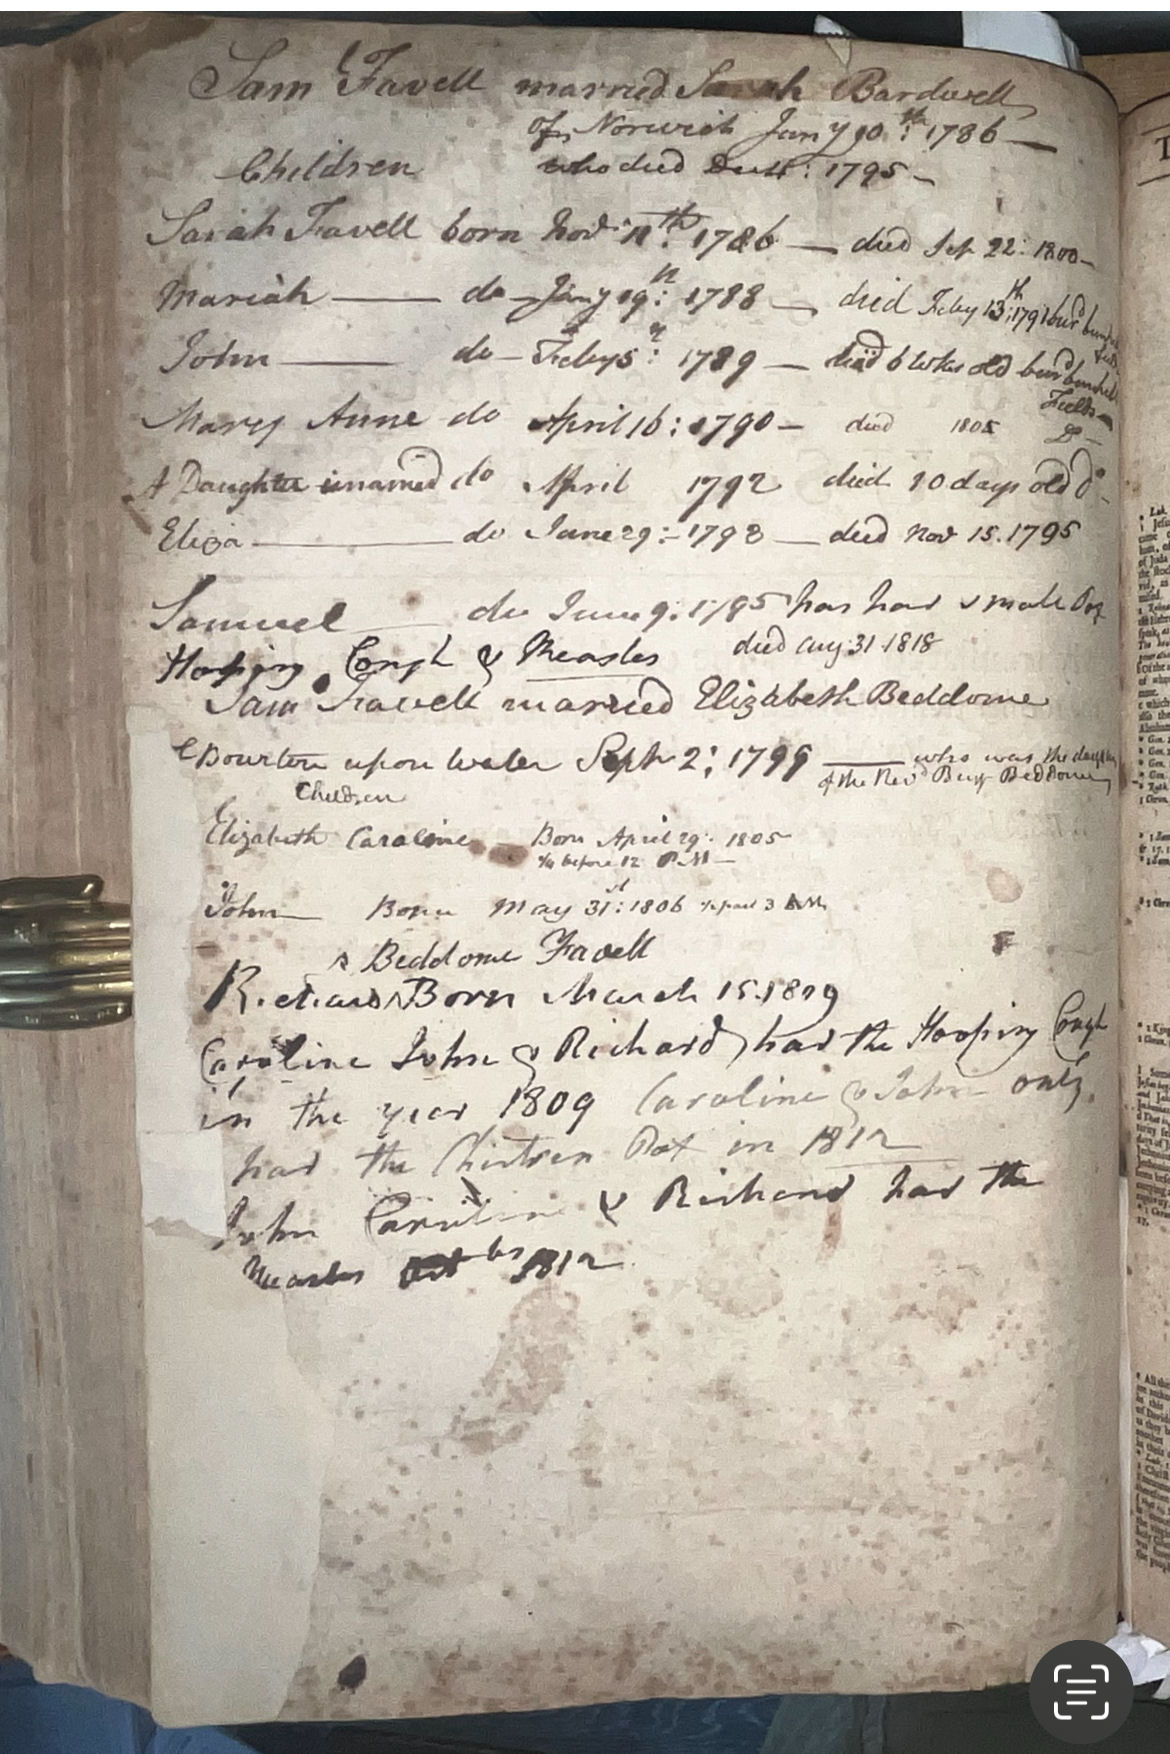 Sam^l Favell married Sarah Bardwell
of Norwich Jan^y 10^th: 1786 —
Children who died Dec^r 4: 1795 —
Sarah Favell born Nov^r 11^th: 1786 — died Sep 22: 1800 —
Mariah — do — Jan^y 19^th: 1788 — died Feby 13^th: 1791 bur^d
John — do — Feby 5^th: 1789 — died 6 Wks old bur^d bunhill
Fields —
Mary Anne do April 16: 1790 — died 1805 D^o —
A Daughter unamed do April 1792 died 10 days old d^o —
Eliza — do June 29: — 1793 — died Nov 15. 1795
Samuel — do June 9. 1795 has had small Pox
Hooping Cough & Measles died Aug 31 1818
Sam^l Favell married Elizabeth Beddome
Bourton upon Water Sept^r 2: 1799 — who was the daughter
of the Rev^d Benj^n Beddome
Children
Elizabeth Caroline — Born April 29: 1805
1/4 before 12 P.M —
John — Born May 31^st: 1806 past 3 A.M.
^ Beddome Favell
Richard ^ Born March 15. 1809
Caroline John & Richard had the Hooping Cough
in the year 1809 Caroline & John only
had the Chicken Pox in 1812
John Caroline & Richard had the
Measles 1812